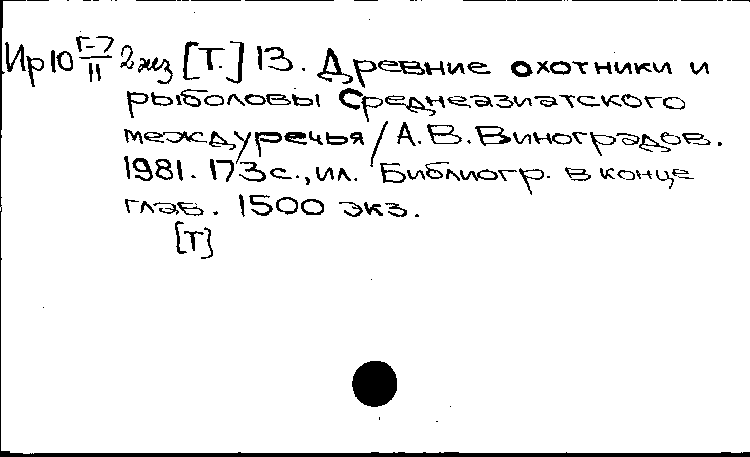 Ир10 Г-7/11 2 экз [Т.] 13. Древние охотники и
рыболовы Среднеазиатского
междуречья / А.В. Виноградов.
1981. 173 с., ил. Библиогр. в конце
глав. 1500 экз.
[Т]